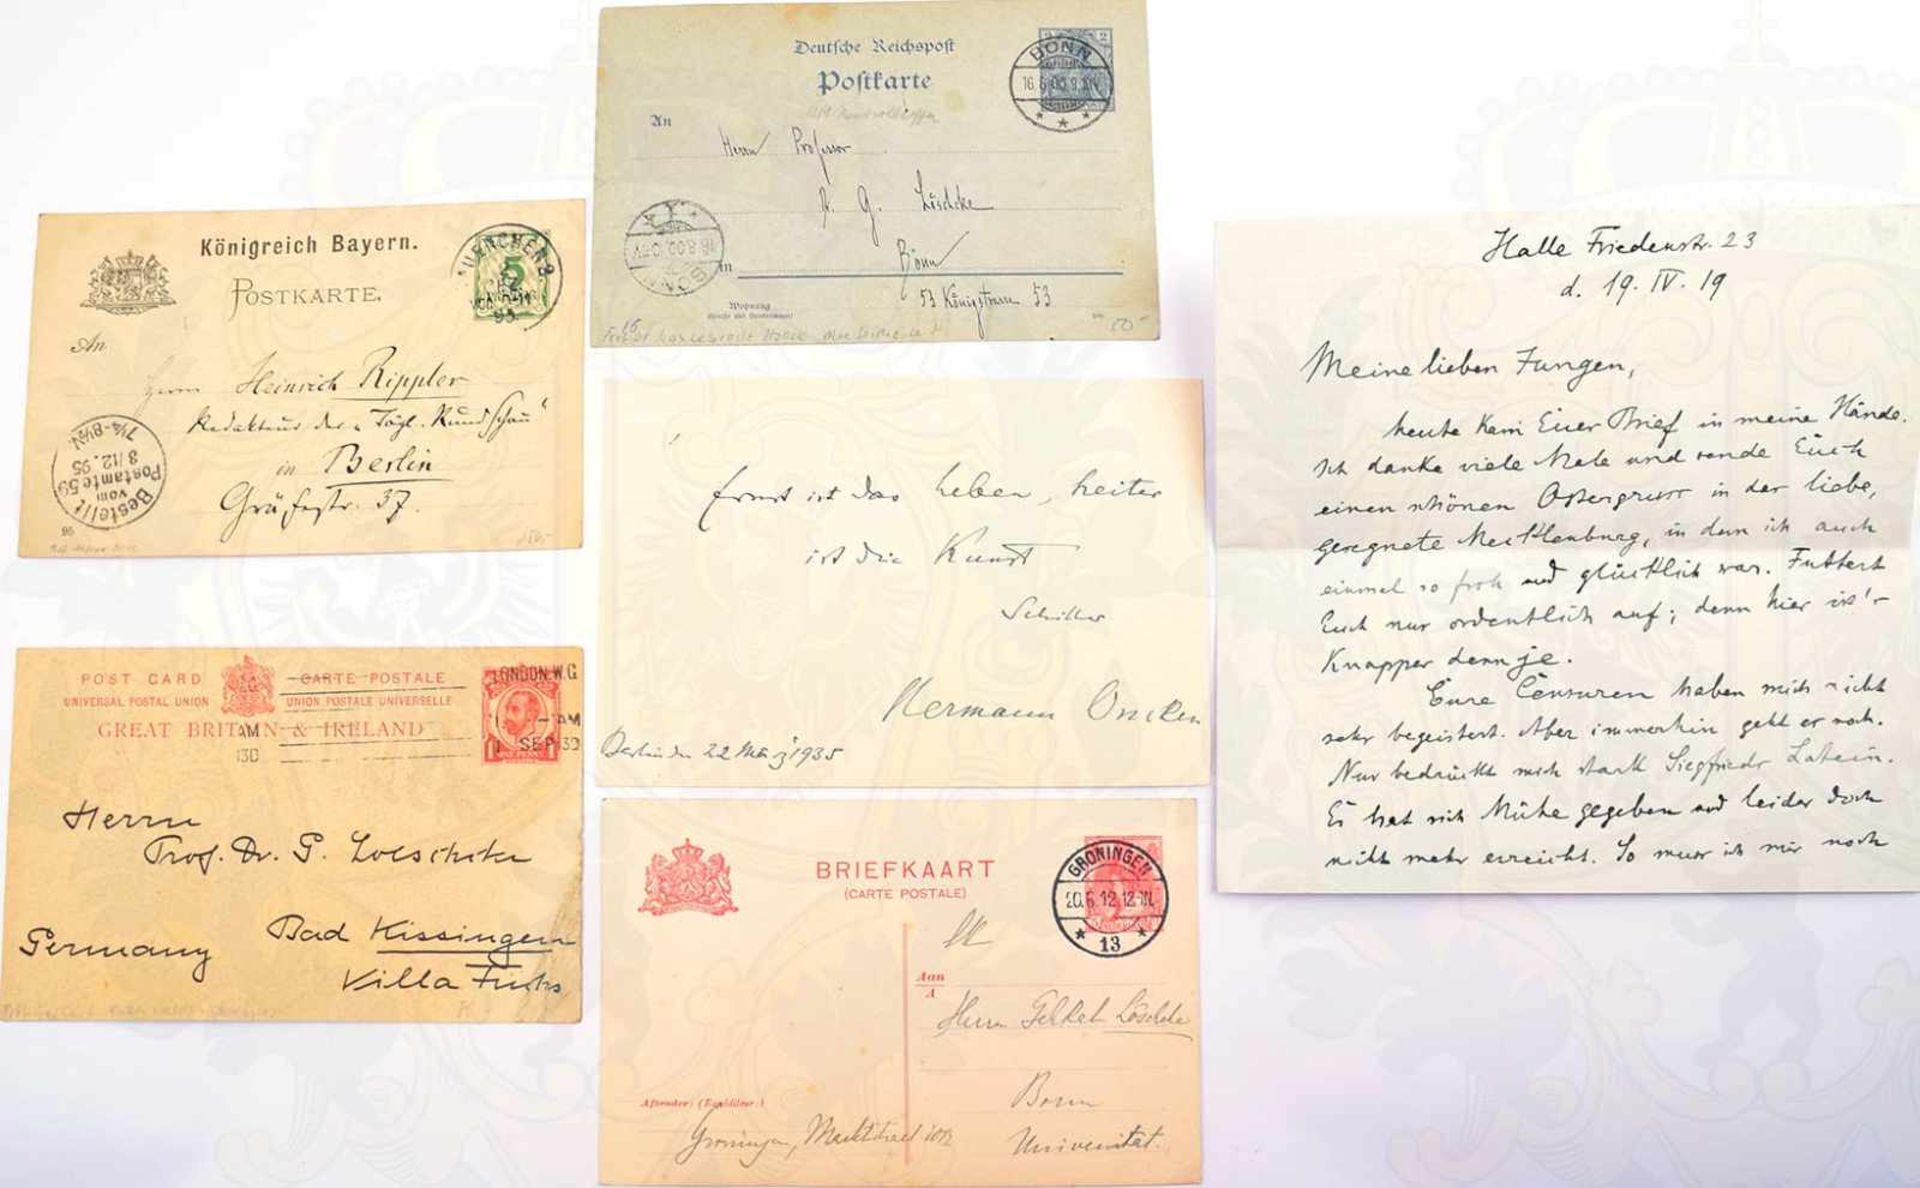 Deutsche Reichspost
Postkarte
BONN
An
Herrn Professor
G. Löschcke
in
Bonn
Wohnung
53 Königstrasse 53
Königreich Bayern.
POSTKARTE.
MUENCHEN 2
5
95
An
Herrn Heinrich Rippler
Redakteur der „Tägl. Rundschau“
in Berlin
Gräfestr. 37.
Bestellt
vom
Postamte 59
8/12.95
7¼-8½N.
95
POST CARD
CARTE POSTALE
UNIVERSAL POSTAL UNION
UNION POSTALE UNIVERSELLE
GREAT BRITAIN & IRELAND
LONDON.W.C
AM
SEP
Herrn
Prof. Dr. G. Loeschcke
Bad Kissingen
Germany
Villa Fuchs
Ernst ist das Leben, heiter
ist die Kunst
Schiller
Hermann Oncken
Berlin den 22 März 1935
BRIEFKAART
(CARTE POSTALE)
GRONINGEN
20.6.12.12-1N.
13
Aan
A
Herrn Löschcke
Bonn
Universität.
Afzender: (Expéditeur:)
Groningen,
Halle Friedenstr. 23
d. 19. IV. 19
Meine lieben Jungen,
heute kam Euer Brief in meine Hände.
Ich danke viele Male und sende Euch
einen schönen Ostergruss in das liebe,
gesegnete Mecklenburg, in dem ich auch
einmal so froh und glücklich war. Futtert
Euch nur ordentlich auf; denn hier ist's
Knapper denn je.
Eure Censuren haben mich nicht
sehr begeistert. Aber immerhin geht es noch.
Nur bedrückt mich stark Siegfrieds Latein.
Er hat sich Mühe gegeben und leider doch
nicht mehr erreicht. So muss ich mir noch